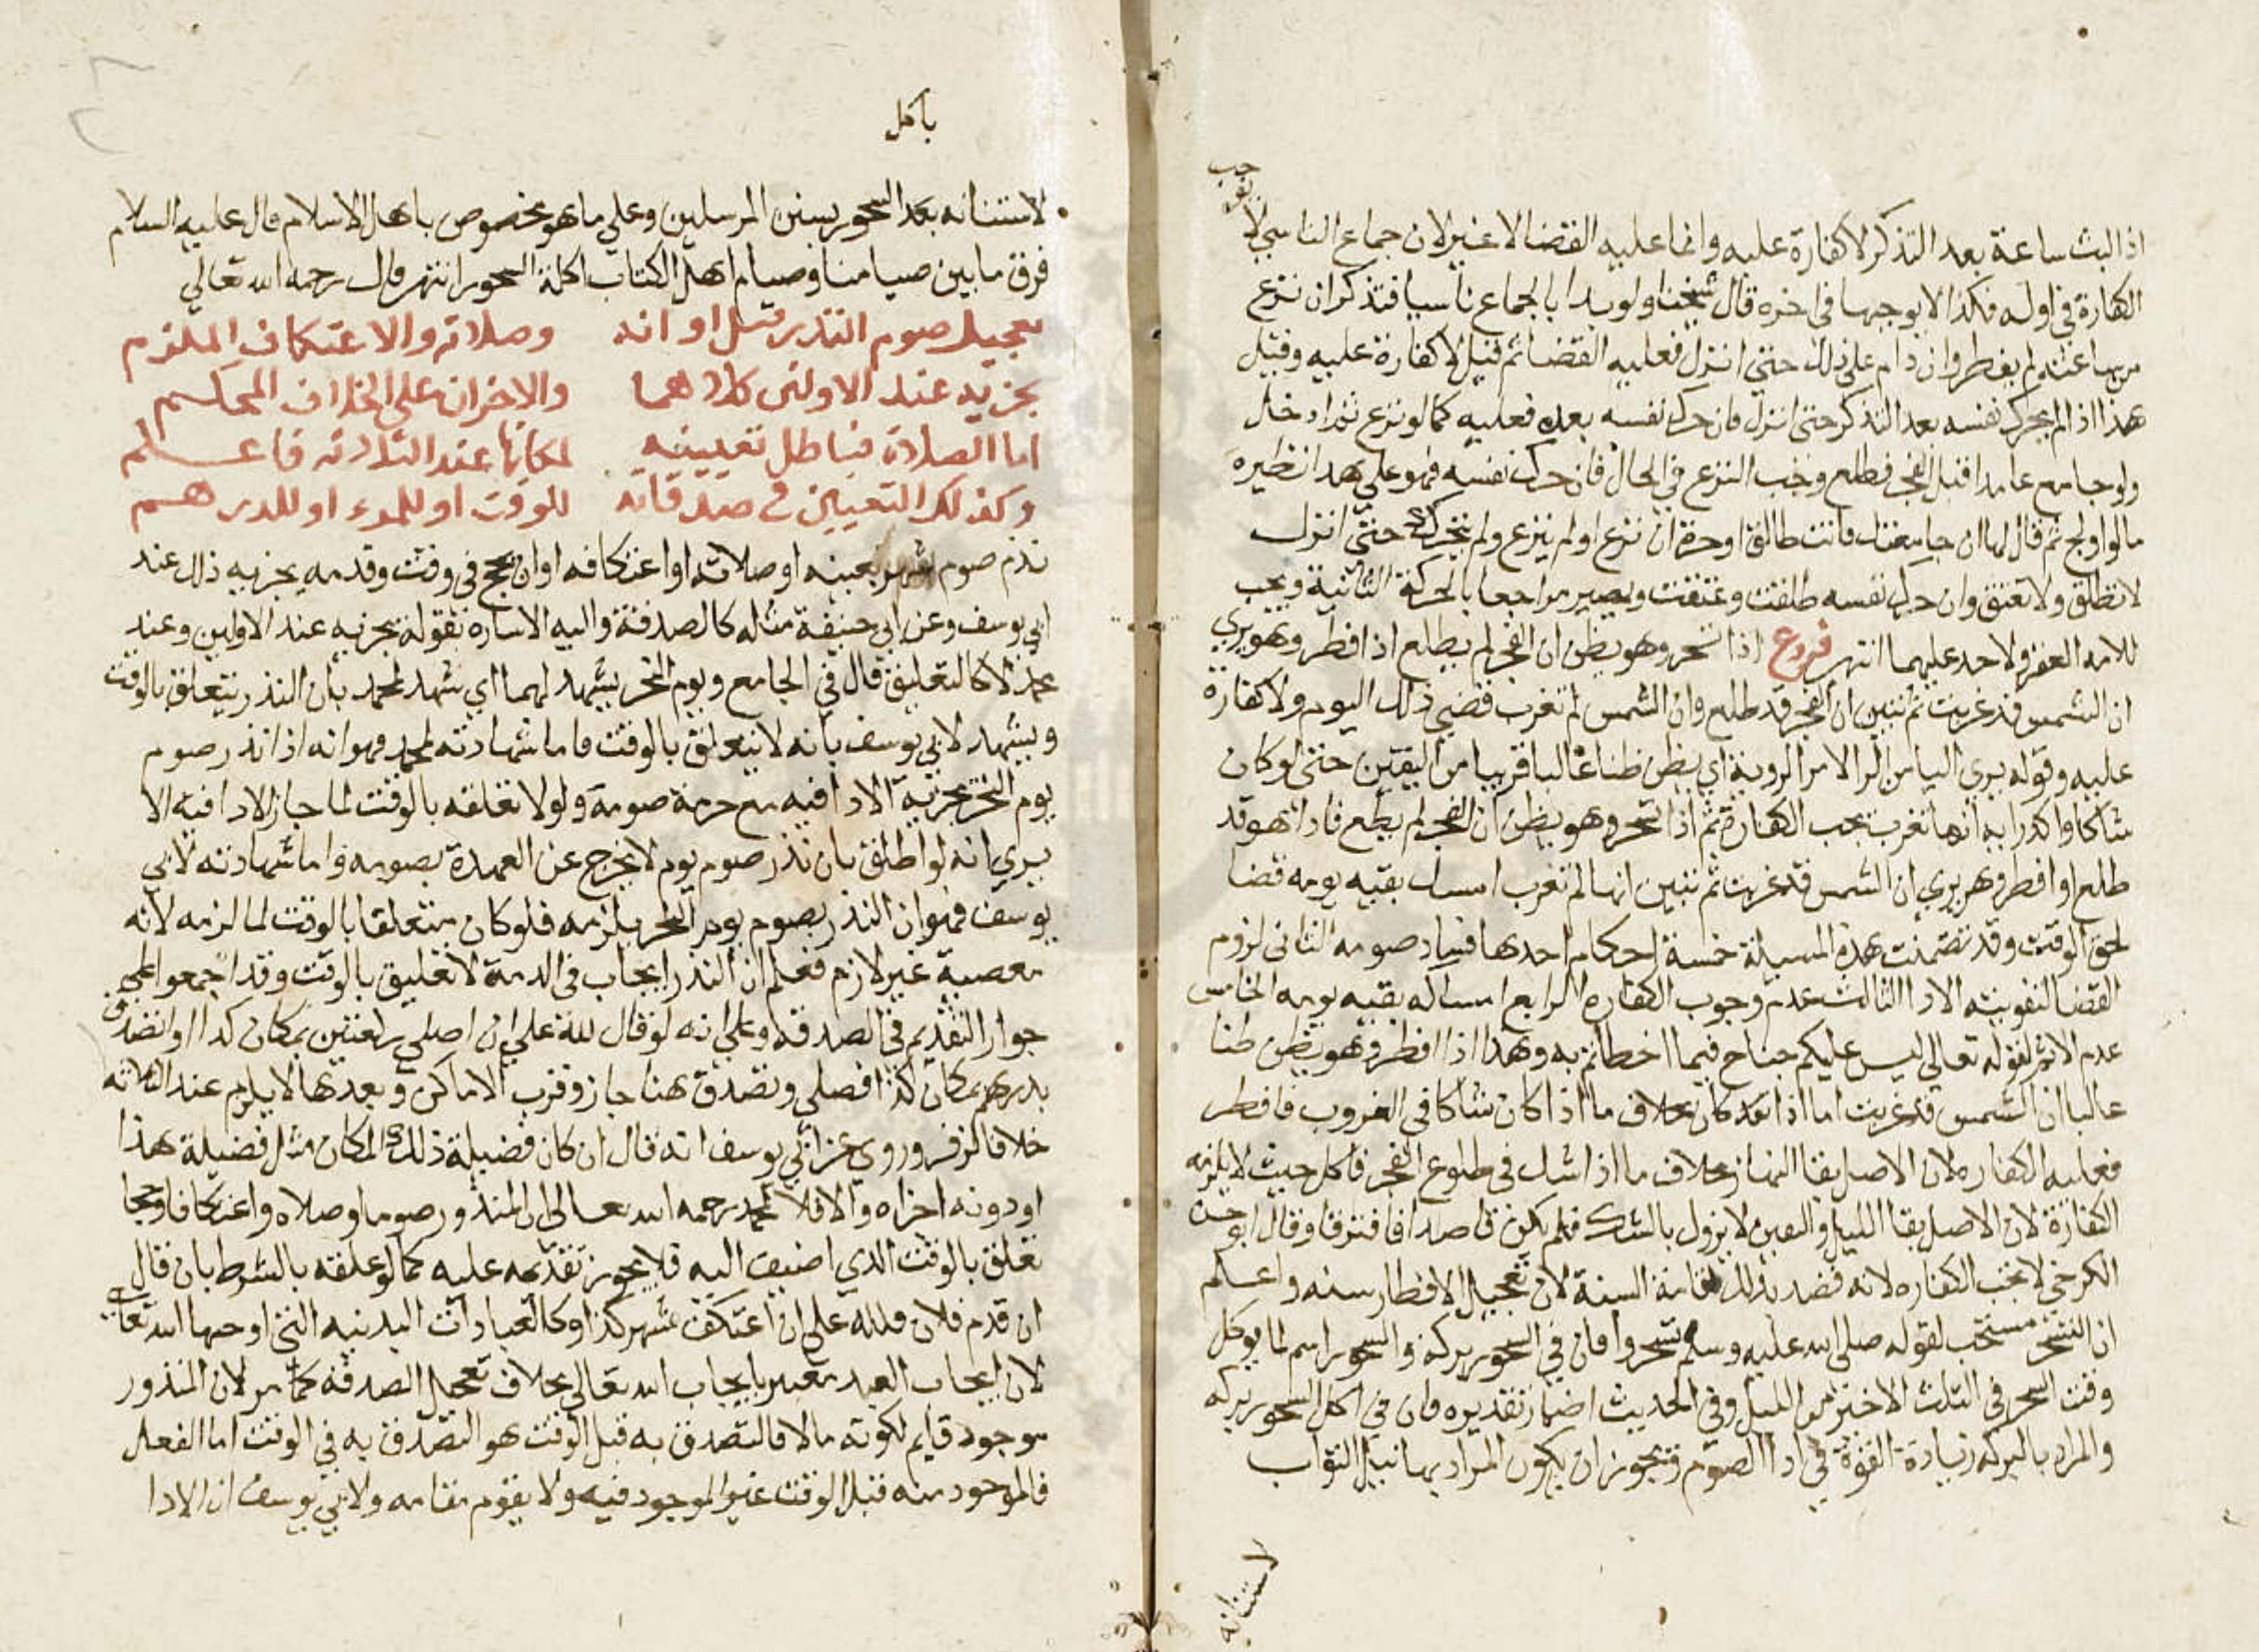 جب
يوجب
اذا لبث ساعة بعد التذكر لا كفارة عليه وانما عليه القضا لا غير لان جماع الناسي لا
الكفارة في اوله فكذا لا يوجبها في اخره قال شيخنا ولو بدا بالجماع ناسيا فتذكر ان نزع
من ساعته لم يفطر وان دام على ذلك حتى انزل فعليه القضا ثم قيل لا كفارة عليه وقيل
هذا اذا لم يحرك نفسه بعد التذكر حتى انزل فان حرك نفسه بعده فعليه كما لو نزع ثم ادخل
ولو جامع عامدا قبل الفجر فطلع وجب النزع في الحال فان حرك نفسه فهو على هذا نظيره
ما لو اولج ثم قال لها ان جامعتك فانت طالق او حرة ان نزع او لم ينزع ولم يتحرك حتى انزل
لا تطلق ولا تعتق وان حرك نفسه طلقت وعتقت ويصير مراجعا بالحركة الثانية ويجب
للامه العقر ولا حد عليهما انتهى فروع اذا تسحر وهو يظن ان الفجر لم يطلع اذا افطر وهو يري
ان الشمس قد غربت ثم تبين ان الفجر قد طلع وان الشمس لم تغرب قضي ذلك اليوم ولا كفارة
عليه وقوله يري اليا من الرا لا من الروية اي يظن ظنا غالبا قريبا من اليقين حتى لو كان
شاكا واكد رايه انها تغرب تجب الكفارة ثم اذا تسحر وهو يظن ان الفجر لم يطلع فاذا هو قد
طلع او افطر وهو يري ان الشمس قد غربت ثم تبين انها لم تغرب امسك بقيه يومه قضا
لحق الوقت وقد تضمنت هذه المسيلة خمسة احكام احدها فساد صومه الثاني لزوم
القضا لتفويته الادا الثالث عدم وجوب الكفاره الرابع امساك بقيه يومه الخامس
عدم الاثم لقوله تعالى ليس عليكم جناح فيما اخطاتم به وهذا اذا افطر وهو يظن ظنا
غالبا ان الشمس قد غربت اما اذا بخلاف ما اذا كان شاكا في الغروب فافطر
فعليه الكفاره لان الاصل بقا النهار بخلاف ما اذا شك في طلوع الفجر فاكل حيث لا يلزمه
الكفارة لان الاصل بقا الليل واليقين لا يزول بالشك فلم يكن قاصدا فافترقا وقال ابو الحسن
الكرخي لا تجب الكفاره لانه قصد بذلك اقامة السنة لان تعجيل الافطار سنه واعلم
ان التسحر مستحب لقوله صلى الله عليه وسلم تسحروا فان في السحور بركه والسحور اسم لما يوكل
وقت السحر في الثلث الاخير من الليل وفي الحديث اضمار تقديره فان في اكل السحور بركه
والمراد بالبركه زيادة القوة في ادا الصوم ويجوز ان يكون المراد بها نيل الثواب
لاستنانه
باكل
لاستنانه بعد السحور بسنن المرسلين وعلى ما هو مخصوص باهل الاسلام قال عليه السلام
فرق ما بين صيامنا وصيام اهل الكتاب اكلة السحور انتهى قال رحمه الله تعالى
تعجيل صوم النذر قبل اوانه وصلاته والاعتكاف الملزم
يجزيه عند الاولين كلاهما والاخران على الخلاف المحكم
اما الصلاة فباطل تعيينه لمكانها عند الثلاثه فاعلم
وكذلك التعيين في صدقاته للوقت او للمرء او للدرهم
نذر صوم شهر بعينه او صلاته او اعتكافه او ان يحج في وقت وقدمه يجزيه ذلك عند
ابي يوسف وعن ابي حنيفة مثله كالصدقة واليه الاشاره بقوله يجزيه عند الاولين وعند
محمد لا كالتعليق قال في الجامع ويوم النحر يشهد لهما اي شهد لمحمد بان النذر يتعلق بالوقت
ويشهد لابي يوسف بانه لا يتعلق بالوقت فاما شهادته لمحمد فهو انه اذا نذر صوم
يوم النحر يجزيه الادا فيه مع حرمة صومه ولولا تعلقه بالوقت لما جاز الادا فيه الا
يري انه لو اطلق بان نذر صوم يوم لا يخرج عن العهدة بصومه واما شهادته لابي
يوسف فهو ان النذر بصوم يوم النحر يلزمه فلو كان متعلقا بالوقت لما لزمه لانه
معصية غير لازم فعلم ان النذر ايجاب في الذمة لا تعليق بالوقت وقد اجمعوا على
جواز التقديم في الصدقه وعلى انه لو قال لله علي ان اصلي ركعتين بمكان كذا او اتصدق
بدرهم بمكان كذا فصلى وتصدق هنا جاز وقرب الاماكن وبعدها لا يلزم عند الثلاثه
خلافا لزفر وروي عن ابي يوسف انه قال ان كان فضيلة ذلك المكان مثل فضيلة هذا
او دونه اجزاه والا فلا لمحمد رحمه الله تعالى ان المنذور صوما وصلاه واعتكافا وحجا
تعلق بالوقت الذي اضيف اليه فلا يجوز تقديمه عليه كما لو علقه بالشرط بان قال
ان قدم فلان فلله علي ان اعتكف شهر كذا وكالعبادات البدنيه التي اوجبها الله تعالى
لان ايجاب العبد معتبر بايجاب الله تعالى بخلاف تعجيل الصدقه كما مر لان المنذور
موجود قايم لكونه مالا فالتصدق به قبل الوقت هو التصدق به في الوقت اما الفعل
فالموجود منه قبل الوقت غير الموجود فيه ولا يقوم مقامه ولابي يوسف ان الادا